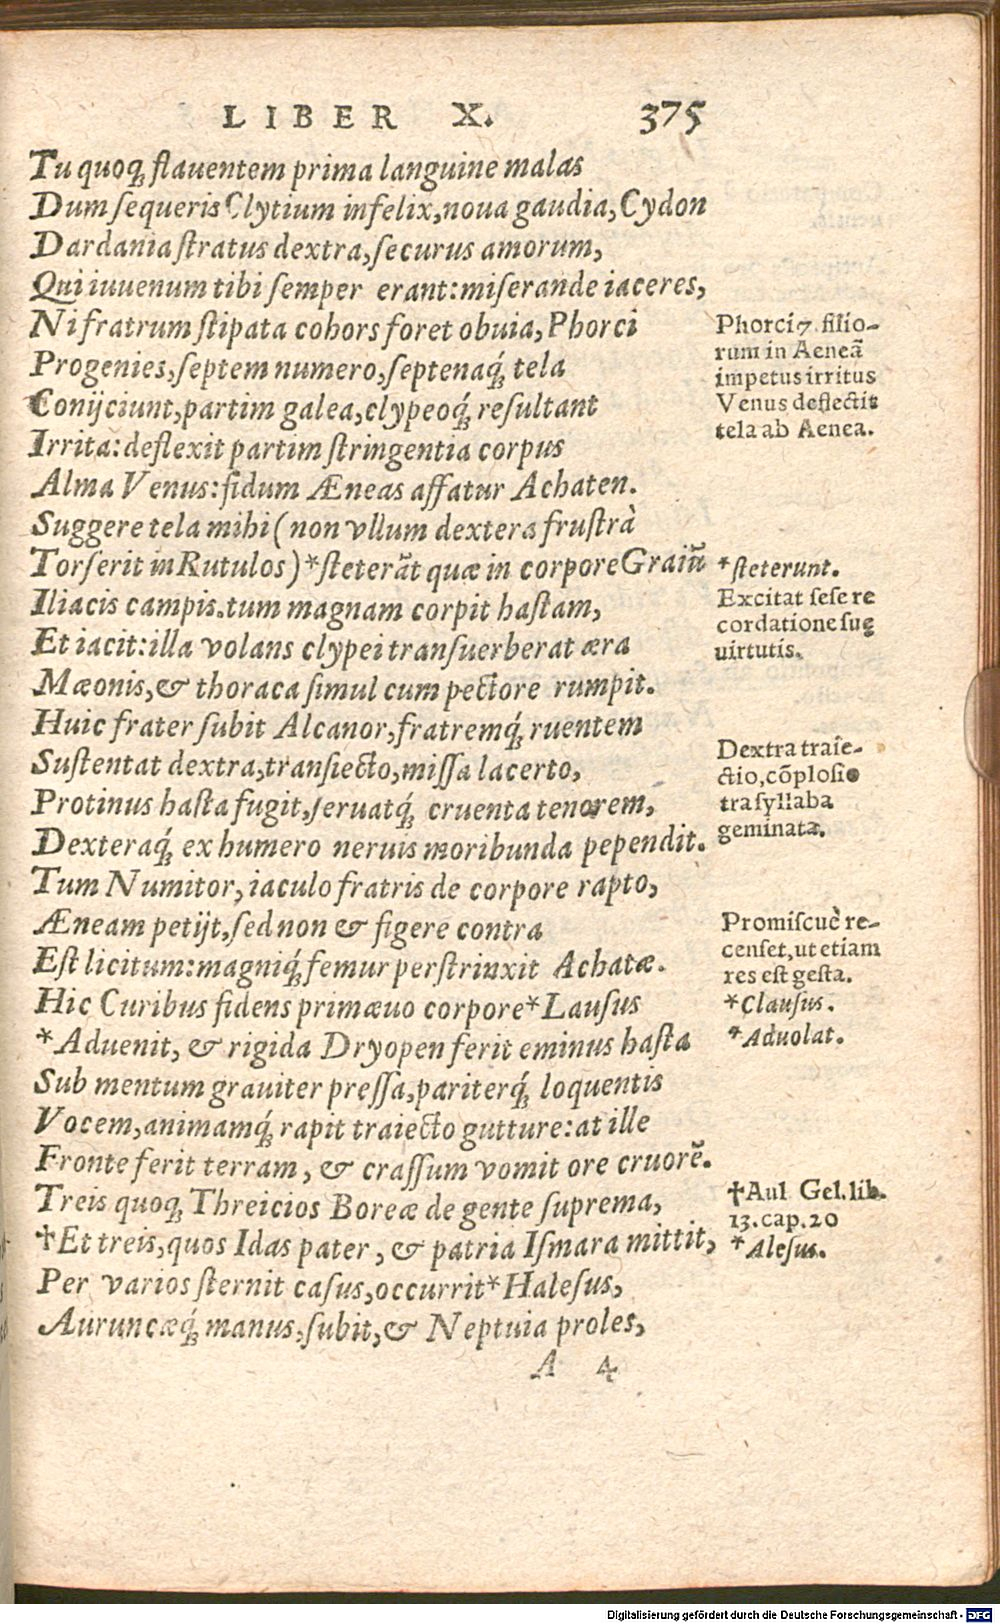 LIBER X. 375
Tu quoq; flauentem prima languine malas
Dum ſequeris Clytium infelix, noua gaudia, Cydon
Dardania ſtratus dextra, ſecurus amorum,
Qui iuuenum tibi ſemper erant: miſerande iaceres,
Ni fratrum ſtipata cohors foret obuia, Phorci
Progenies, ſeptem numero, ſeptenaq́; tela
Conijciunt, partim galea, clypeoq́; reſultant
Irrita: deflexit partim ſtringentia corpus
Alma Venus: fidum Æneas affatur Achaten.
Suggere tela mihi (non vllum dextera fruſtrà
Torſerit in Rutulos) *ſteterūt quæ in corpore Graiũ
Iliacis campis. tum magnam corpit haſtam,
Et iacit: illa volans clypei tranſuerberat æra
Mæonis, & thoraca ſimul cum pectore rumpit.
Huic frater ſubit Alcanor, fratremq́; ruentem
Suſtentat dextra, tranſiecto, miſſa lacerto,
Protinus haſta fugit, ſeruatq́; cruenta tenorem,
Dexteraq́; ex humero neruis moribunda pependit.
Tum Numitor, iaculo fratris de corpore rapto,
Æneam petijt, ſed non & figere contra
Eſt licitum: magniq́; femur perſtrinxit Achatæ.
Hic Curibus fidens primæuo corpore *Lauſus
*Aduenit, & rigida Dryopen ferit eminus haſta
Sub mentum grauiter preſſa, pariterq́; loquentis
Vocem, animamq́; rapit traiecto gutture: at ille
Fronte ferit terram, & craſſum vomit ore cruorẽ.
Treis quoq; Threicios Boreæ de gente ſuprema,
†Et treis, quos Idas pater, & patria Iſmara mittit,
Per varios ſternit caſus, occurrit *Haleſus,
Auruncæq́; manus, ſubit, & Neptuia proles,
A 4
Phorci 7. filio-
rum in Aeneã
impetus irritus
Venus deflectit
tela ab Aenea.
*ſteterunt.
Excitat ſeſe re
cordatione ſuę
uirtutis.
Dextra traie-
ctio, cõploſio
tra ſyllaba
geminata.
Promiſcuè re-
cenſet, ut etiam
res eſt geſta.
*Clauſus.
*Aduolat.
†Aul Gel. lib.
13. cap. 20
*Aleſus.
Digitalisierung gefördert durch die Deutsche Forschungsgemeinschaft - DFG